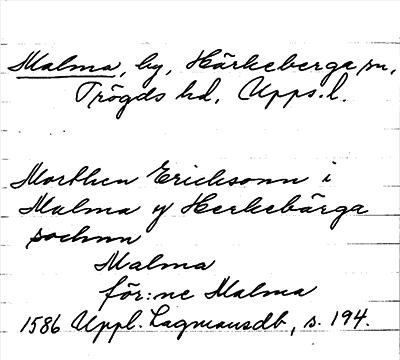 Malma, by, Härkeberga sn,
Trögds hd, Upps. l.
Morthen Ericksonn i
Malma y Herkebärga
sochnn
Malma
för:ne Malma
1586 Uppl. Lagmansdb, s. 194.